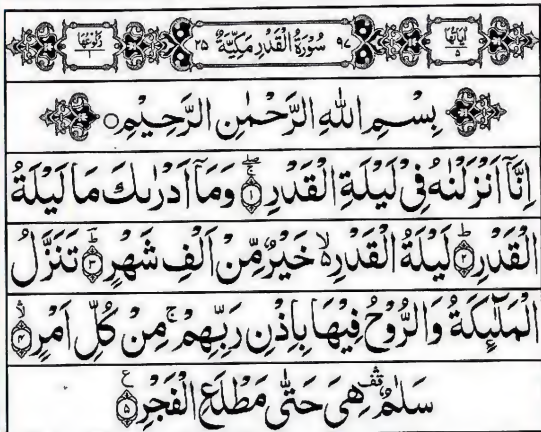 اٰيَاتُهَا ٥ ٩٧ سُوْرَةُ الْقَدْرِ مَكِّيَّةٌ ٢٥ رُكُوْعُهَا ١
بِسْمِ اللّٰهِ الرَّحْمٰنِ الرَّحِيْمِ ○
اِنَّاۤ اَنْزَلْنٰهُ فِيْ لَيْلَةِ الْقَدْرِ ۚۖ ۝١ وَمَاۤ اَدْرٰىكَ مَا لَيْلَةُ
الْقَدْرِ ؕ ۝٢ لَيْلَةُ الْقَدْرِ ۙ۬ خَيْرٌ مِّنْ اَلْفِ شَهْرٍ ؕ ۝٣ تَنَزَّلُ
الْمَلٰٓئِكَةُ وَالرُّوْحُ فِيْهَا بِاِذْنِ رَبِّهِمْ ۚ مِنْ كُلِّ اَمْرٍ ۙۛ ۝٤
سَلٰمٌ ۛ قف هِيَ حَتّٰى مَطْلَعِ الْفَجْرِ ع ۝٥